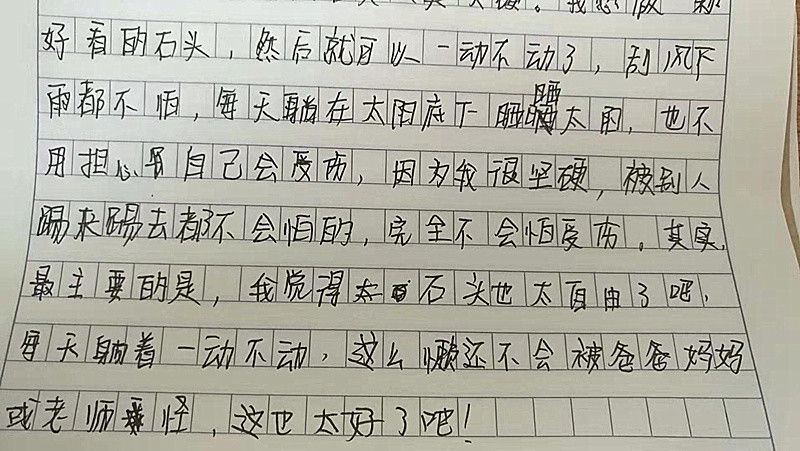 好看的石头，然后就可以一动不动了，刮风下
雨都不怕，每天躺在太阳底下睡晒太的，也不
用担心自己会受伤，因为我很坚硬，被别人
踢来踢去都不会怕的，完全不会怕受伤。其实，
最主要的是，我觉得太石头也太自由了吧，
每天躺着一动不动，这么懒还不会被爸爸妈妈
或老师怪，这也太好了吧！